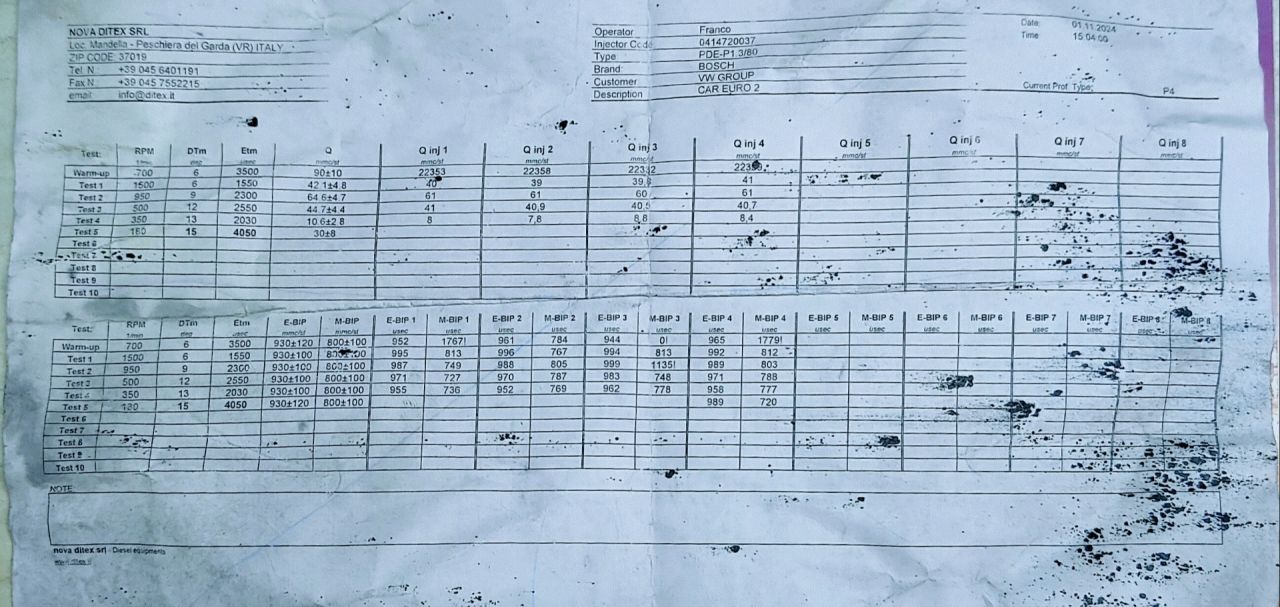 NOVA DITEX SRL
Loc. Mandella - Peschiera del Garda (VR) ITALY
ZIP CODE: 37019
Tel. N. +39 045 6401191
Fax N. +39 045 7552215
email: info@ditex.it
Operator Franco
Injector Code 0414720037
Type PDE-P1.3/80
Brand BOSCH
Customer VW GROUP
Description CAR EURO 2
Date: 01.11.2024
Time 15:04:00
Current Prof. Type: P4
Test: RPM DTm Etm Q Q inj 1 Q inj 2 Q inj 3 Q inj 4 Q inj 5 Q inj 6 Q inj 7 Q inj 8
1/min deg usec mmc/st mmc/st mmc/st mmc/st mmc/st mmc/st mmc/st mmc/st mmc/st
Warm-up 700 6 3500 90±10 22353 22358
Test 1 1500 6 1550 42.1±4.8 40 39 41
Test 2 950 9 2300 64.6±4.7 61 61 60 61
Test 3 500 12 2550 44.7±4.4 41 40,9 40,5 40,7
Test 4 350 13 2030 10.6±2.8 8 7,8 8,8 8,4
Test 5 15 4050 30±8
Test 6
Test 7
Test 8
Test 9
Test 10
Test: RPM DTm Etm E-BIP M-BIP E-BIP 1 M-BIP 1 E-BIP 2 M-BIP 2 E-BIP 3 M-BIP 3 E-BIP 4 M-BIP 4 E-BIP 5 M-BIP 5 E-BIP 6 M-BIP 6 E-BIP 7 M-BIP 7 E-BIP 8 M-BIP 8
1/min deg usec mmc/st mmc/st usec usec usec usec usec usec usec usec usec usec usec usec usec usec usec usec
Warm-up 700 6 3500 930±120 800±100 952 1767! 961 784 944 0! 965 1779!
Test 1 1500 6 1550 930±100 800±100 995 813 996 767 994 813 992 812
Test 2 950 9 2300 930±100 800±100 987 749 988 805 999 1135! 989 803
Test 3 500 12 2550 930±100 800±100 971 727 970 787 983 748 971 788
Test 4 350 13 2030 930±100 800±100 955 736 952 769 962 778 958 777
Test 5 15 4050 930±120 800±100 989 720
Test 6
Test 7
Test 8
Test 9
Test 10
NOTE:
nova ditex srl - Diesel equipments